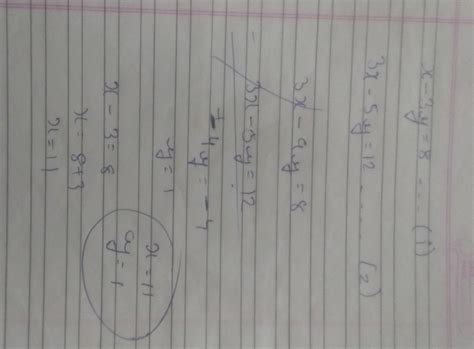 x - 3y = 8 .... (1)
3x - 5y = 12 ...... (2)
3x - 9y = 8
3x - 5y = 12
-
- 4y = - 4
y = 1
x - 3 = 8
x = 8+3
x = 11
x = 11
y = 1